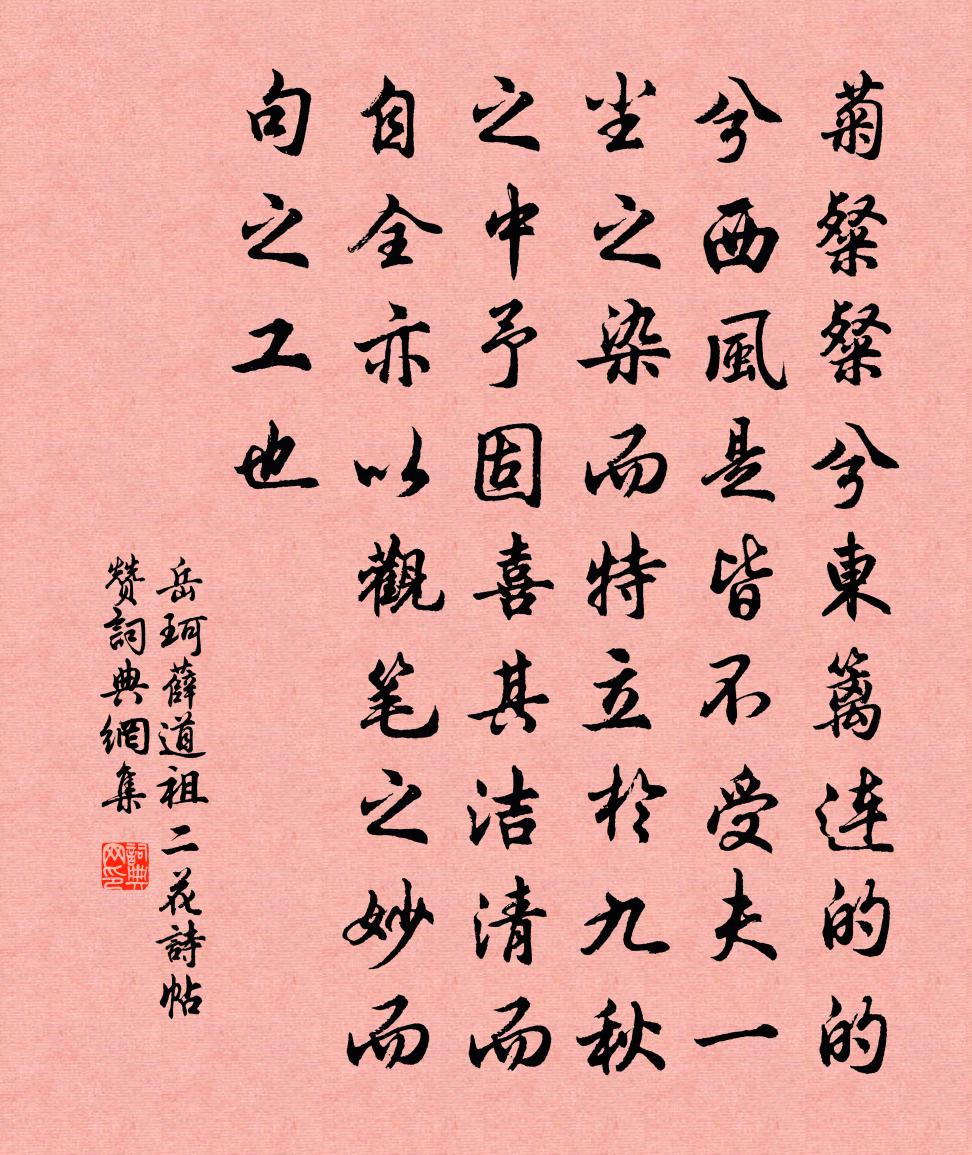 菊粲粲兮東籬连的的
兮西風是皆不受夫一
尘之染而特立於九秋
之中予固喜其洁清而
自全亦以觀笔之妙而
句之工也
岳珂薛道祖二花詩帖
赞詞典網集
詞典网印